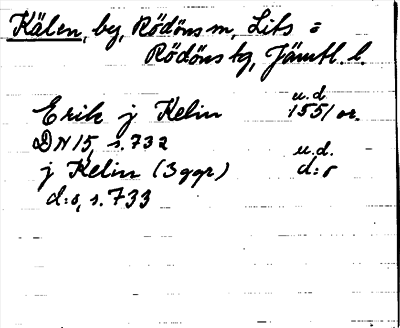 Kälen, by, Rödöns sn, Lits =
Rödöns tg, Jämtl. l.
Erik j Kelin u.d. 1551 or.
DN 15, s. 732
j Kelin (3 ggr) u.d. d:o
d:o, s. 733